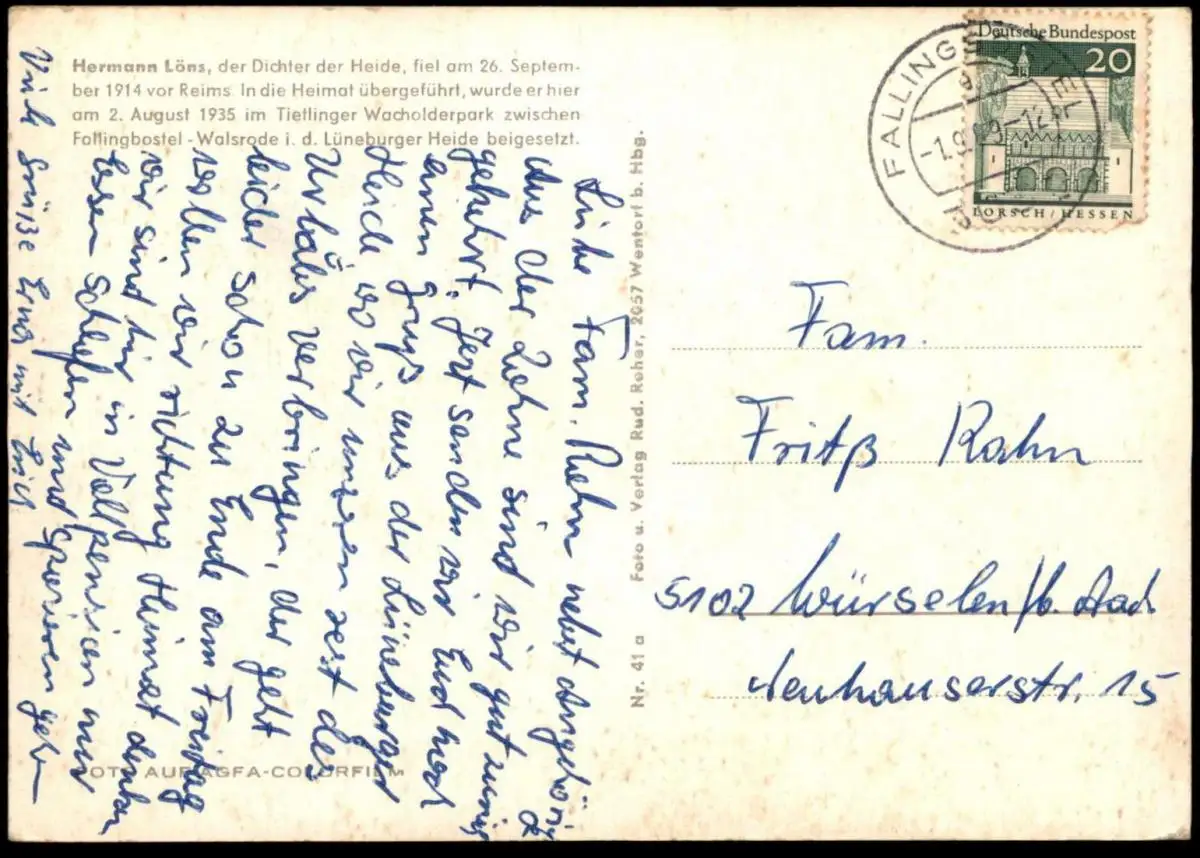 Hermann Löns, der Dichter der Heide, fiel am 26. Septem-
ber 1914 vor Reims. In die Heimat übergeführt, wurde er hier
am 2. August 1935 im Tietlinger Wacholderpark zwischen
Fallingbostel - Walsrode i. d. Lüneburger Heide beigesetzt.
Liebe Fam. nebst Angehörig
Aus der sind wir gut zurüc
gekehrt. Jezt senden wir Euch
einen Gruß aus der Lüneburger
Heide wo wir unseren rest des
Urlaubs verbringen, der geht
leider schon zu Ende am Freitag
wollen wir richtung Heimat denken
wir sind hir in Vollpension nur
Essen Schlafen und Spazieren gehn
Viele Grüße Erna mit
FOTO AUF AGFA-COLORFILM
Nr. 41 a Foto u. Verlag Rud. Reher, 2057 Wentorf b. Hbg.
Deutsche Bundespost
20
LORSCH/HESSEN
FALLINGBOSTEL
Fam.
Fritß Kahn
5102 Würselen/b. Aach
Neuhauserstr. 15